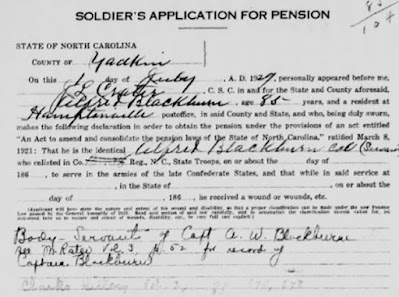 85
SOLDIER'S APPLICATION FOR PENSION
STATE OF NORTH CAROLINA
COUNTY OF Yadkin
On this 1 day of July, A. D. 1929, personally appeared before me,
C. S. C. in and for the State and County aforesaid,
Alfred Blackburn age 85 years, and a resident at
Hamptonville postoffice, in said County and State, and who, being duly sworn,
makes the following declaration in order to obtain the pension under the provisions of an act entitled
"An Act to amend and consolidate the pension laws of the State of North Carolina," ratified March 8,
1921: That he is the identical Alfred Blackburn Col (Servant)
who enlisted in Co. Reg., N. C., State Troops, on or about the day of
186 , to serve in the armies of the late Confederate States, and that while in said service at
, in the State of , on or about the
day of 186 , he received a wound or wounds, etc.
Body Servant of Capt A. W. Blackburne
see M. Rater Vol 3, p. 52 for record of
Captain Blackburne